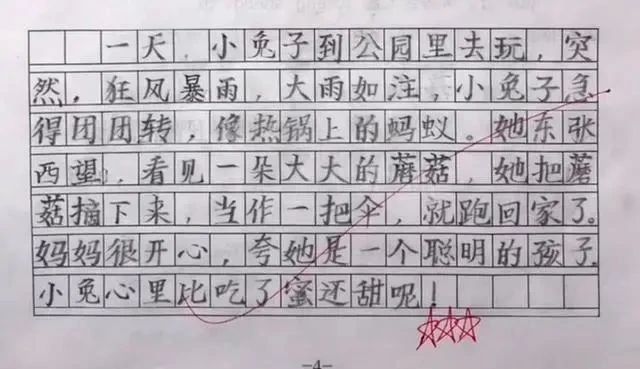 一天，小兔子到公园里去玩，突
然，狂风暴雨，大雨如注，小兔子急
得团团转，像热锅上的蚂蚁。她东张
西望，看见一朵大大的蘑菇，她把蘑
菇摘下来，当作一把伞，就跑回家了。
妈妈很开心，夸她是一个聪明的孩子.
小兔心里比吃了蜜还甜呢！
-4-